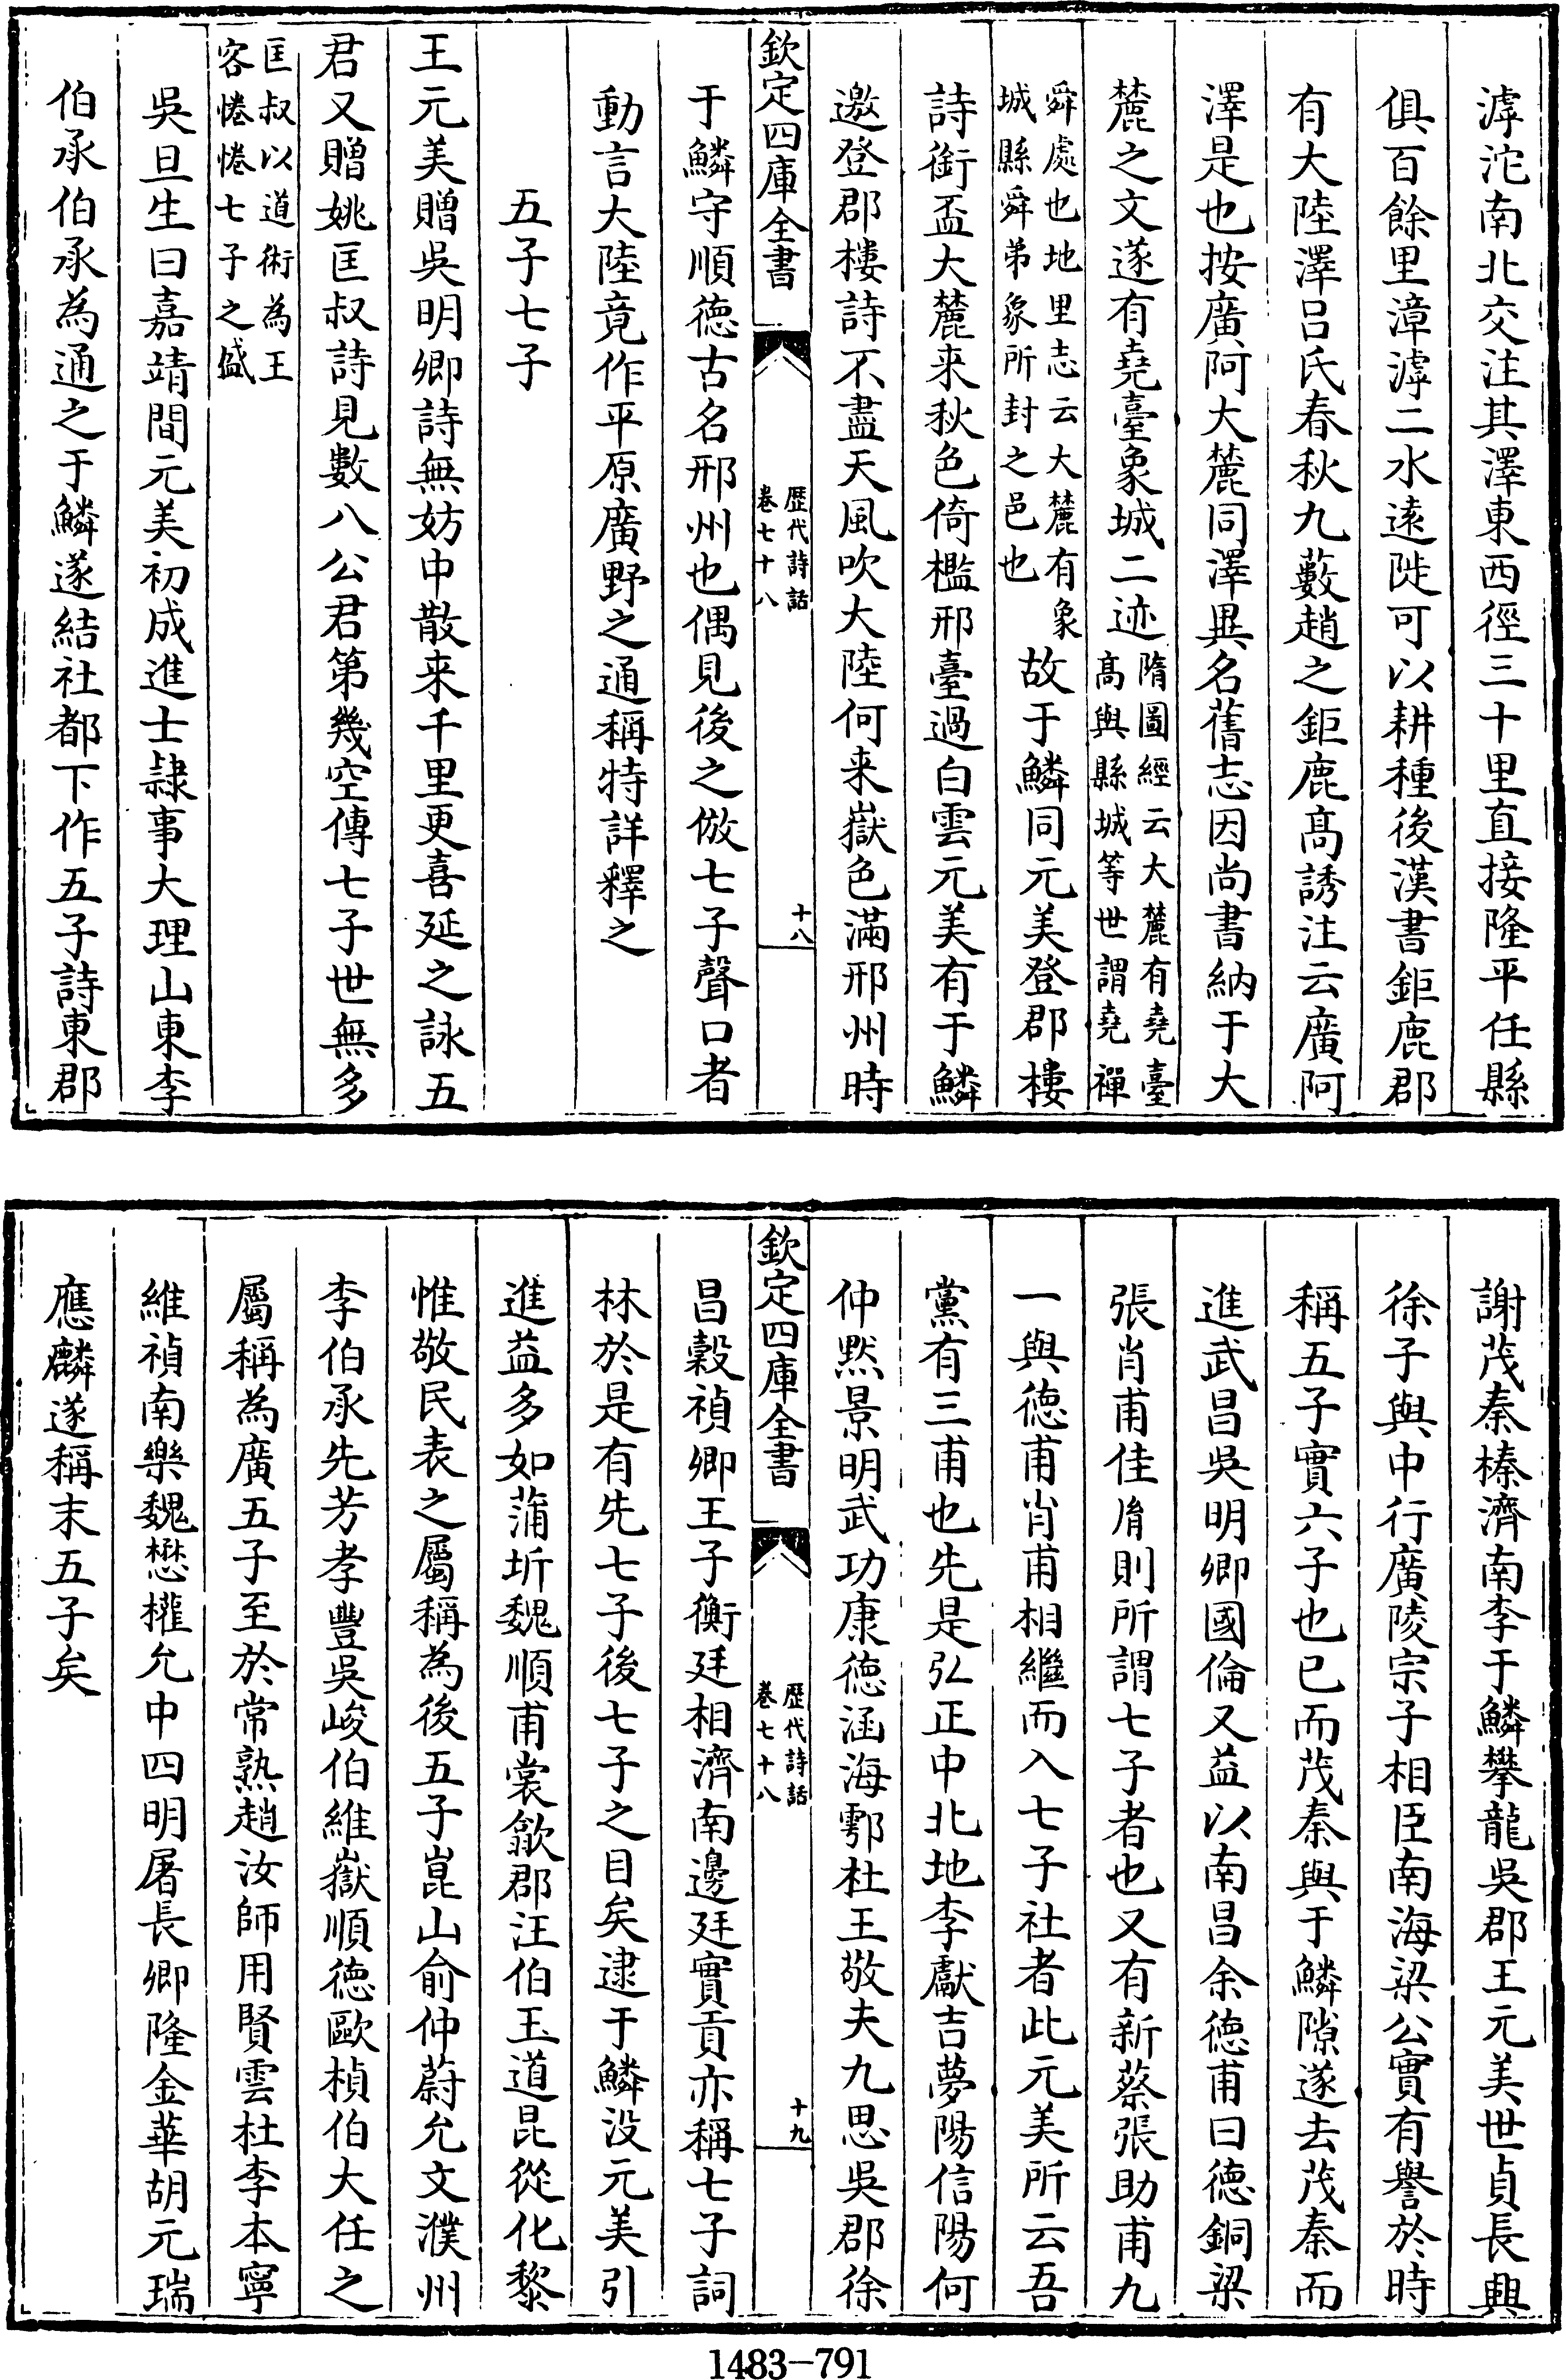 滹沱南北交注其澤東西徑三十里直接隆平任縣
俱百餘里漳滹二水遠陡可以耕種後漢書鉅鹿郡
有大陸澤吕氏春秋九藪趙之鉅鹿髙誘注云廣阿
澤是也按廣阿大麓同澤異名舊志因尚書納于大
麓之文遂有堯臺象城二迹隋圖經云大麓有堯臺
髙與縣城等世謂堯禪
舜處也地里志云大麓有象
城縣舜弟象所封之邑也故于鱗同元美登郡樓
詩銜盃大麓来秋色倚檻邢臺過白雲元美有于鱗
邀登郡樓詩不盡天風吹大陸何来嶽色滿邢州時
欽定四庫全書
歴代詩話
卷七十八
十八
于鱗守順徳古名邢州也偶見後之倣七子聲口者
動言大陸竟作平原廣野之通稱特詳釋之
五子七子
王元美贈吳明卿詩無妨中散来千里更喜延之詠五
君又贈姚匡叔詩見數八公君第幾空傳七子世無多
匡叔以道術為王
客惓惓七子之盛
吳旦生曰嘉靖間元美初成進士隷事大理山東李
伯承伯承為通之于鱗遂結社都下作五子詩東郡
謝茂秦榛濟南李于鱗攀龍吳郡王元美世貞長興
徐子與中行廣陵宗子相臣南海梁公實有譽於時
稱五子實六子也已而茂秦與于鱗隙遂去茂秦而
進武昌吳明卿國倫又益以南昌余徳甫曰徳銅梁
張肖甫佳胤則所謂七子者也又有新蔡張助甫九
一與徳甫肖甫相繼而入七子社者此元美所云吾
黨有三甫也先是弘正中北地李獻吉夢陽信陽何
仲黙景明武功康徳涵海鄠杜王敬夫九思吳郡徐
欽定四庫全書
歴代詩話
卷七十八
十九
昌穀禎卿王子衡廷相濟南邊廷實貢亦稱七子詞
林於是有先七子後七子之目矣逮于鱗没元美引
進益多如蒲圻魏順甫裳歙郡汪伯玉道昆從化黎
惟敬民表之屬稱為後五子崑山俞仲蔚允文濮州
李伯承先芳孝豐吳峻伯維嶽順徳歐楨伯大任之
屬稱為廣五子至於常熟趙汝師用賢雲杜李本寧
維禎南樂魏懋權允中四明屠長卿隆金華胡元瑞
應麟遂稱末五子矣
1483-791